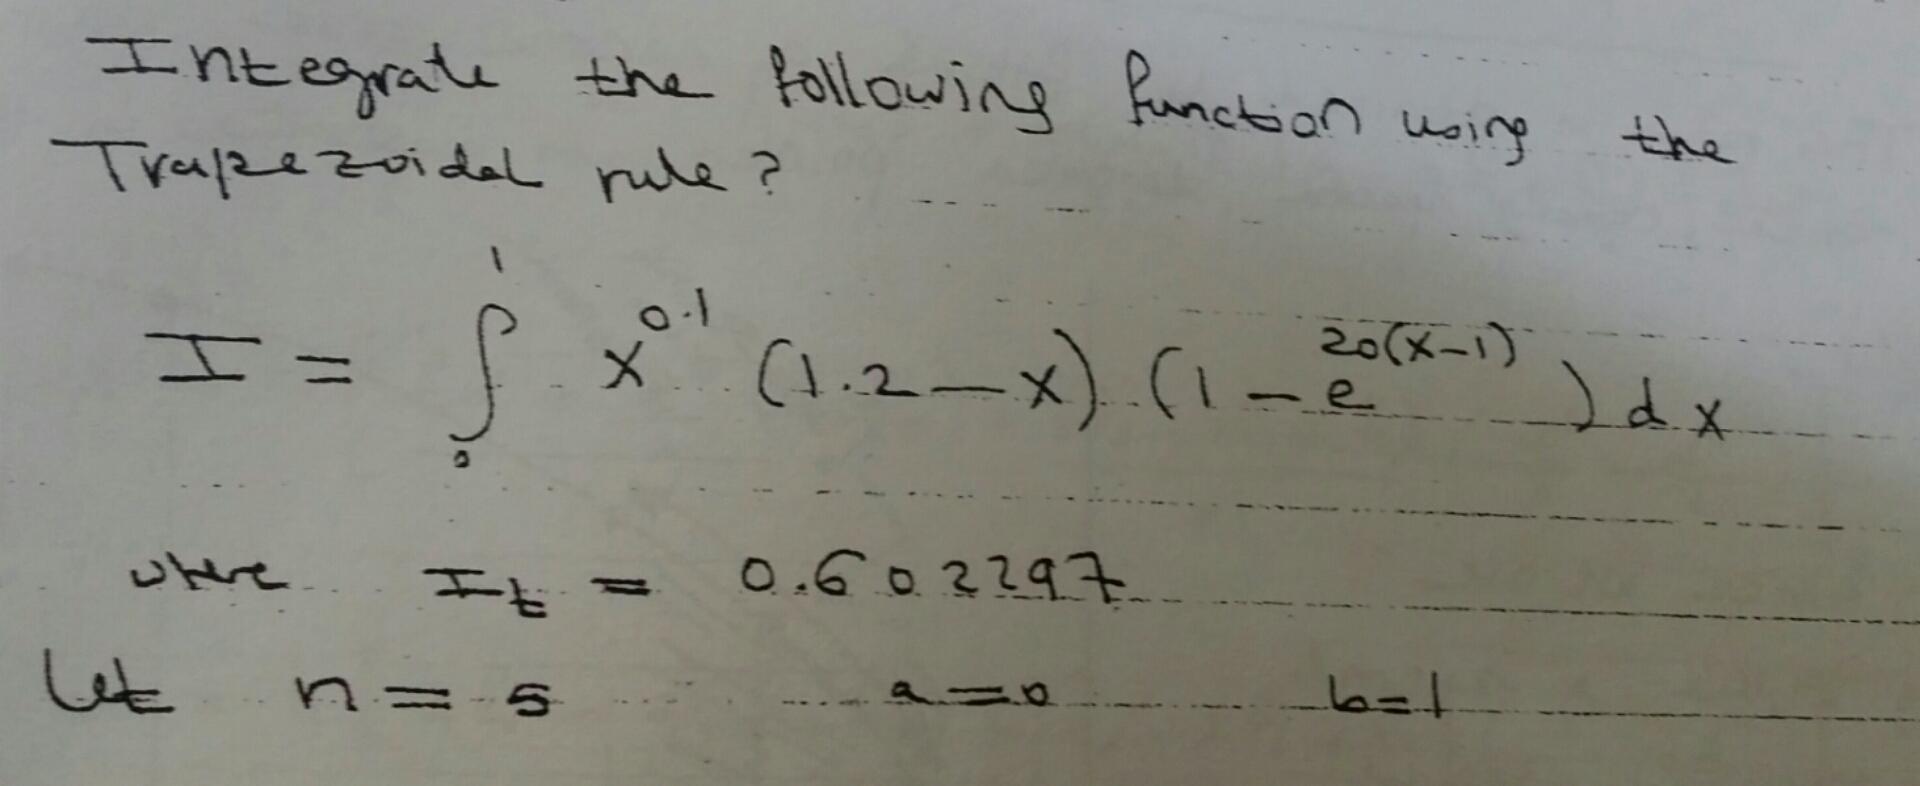 Integrate the following function using the
Trapezoidal rule?
I = ∫₀¹ x^0.1 (1.2 − x) (1 − e^20(x−1)) dx
where I_t = 0.602297
let n = 5 a = 0 b = 1